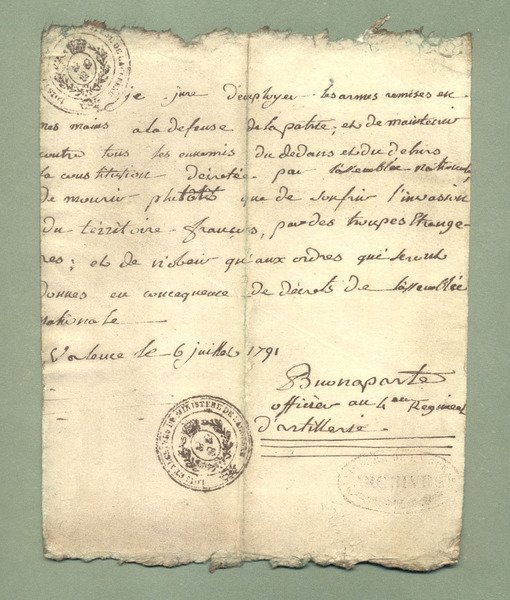 je jure d'employer les armes remises en
mes mains a la defense de la patrie, et de maintenir
contre tous les ennemis du dedans et du dehors
la constitution décretée par l'assemblée nationale,
de mourir plutôt que de soufrir l'invasion
du territoire français, par des troupes Etrange-
res; et de n'obeir qu'aux ordres qui seront
donnes en concequence de décrets de l'assemblée
nationale
Valence le 6 juillet 1791
Buonaparte
officier au 4eme Regiment
d'artillerie.
MINISTERE DE LA GUERRE
ARCHIVES